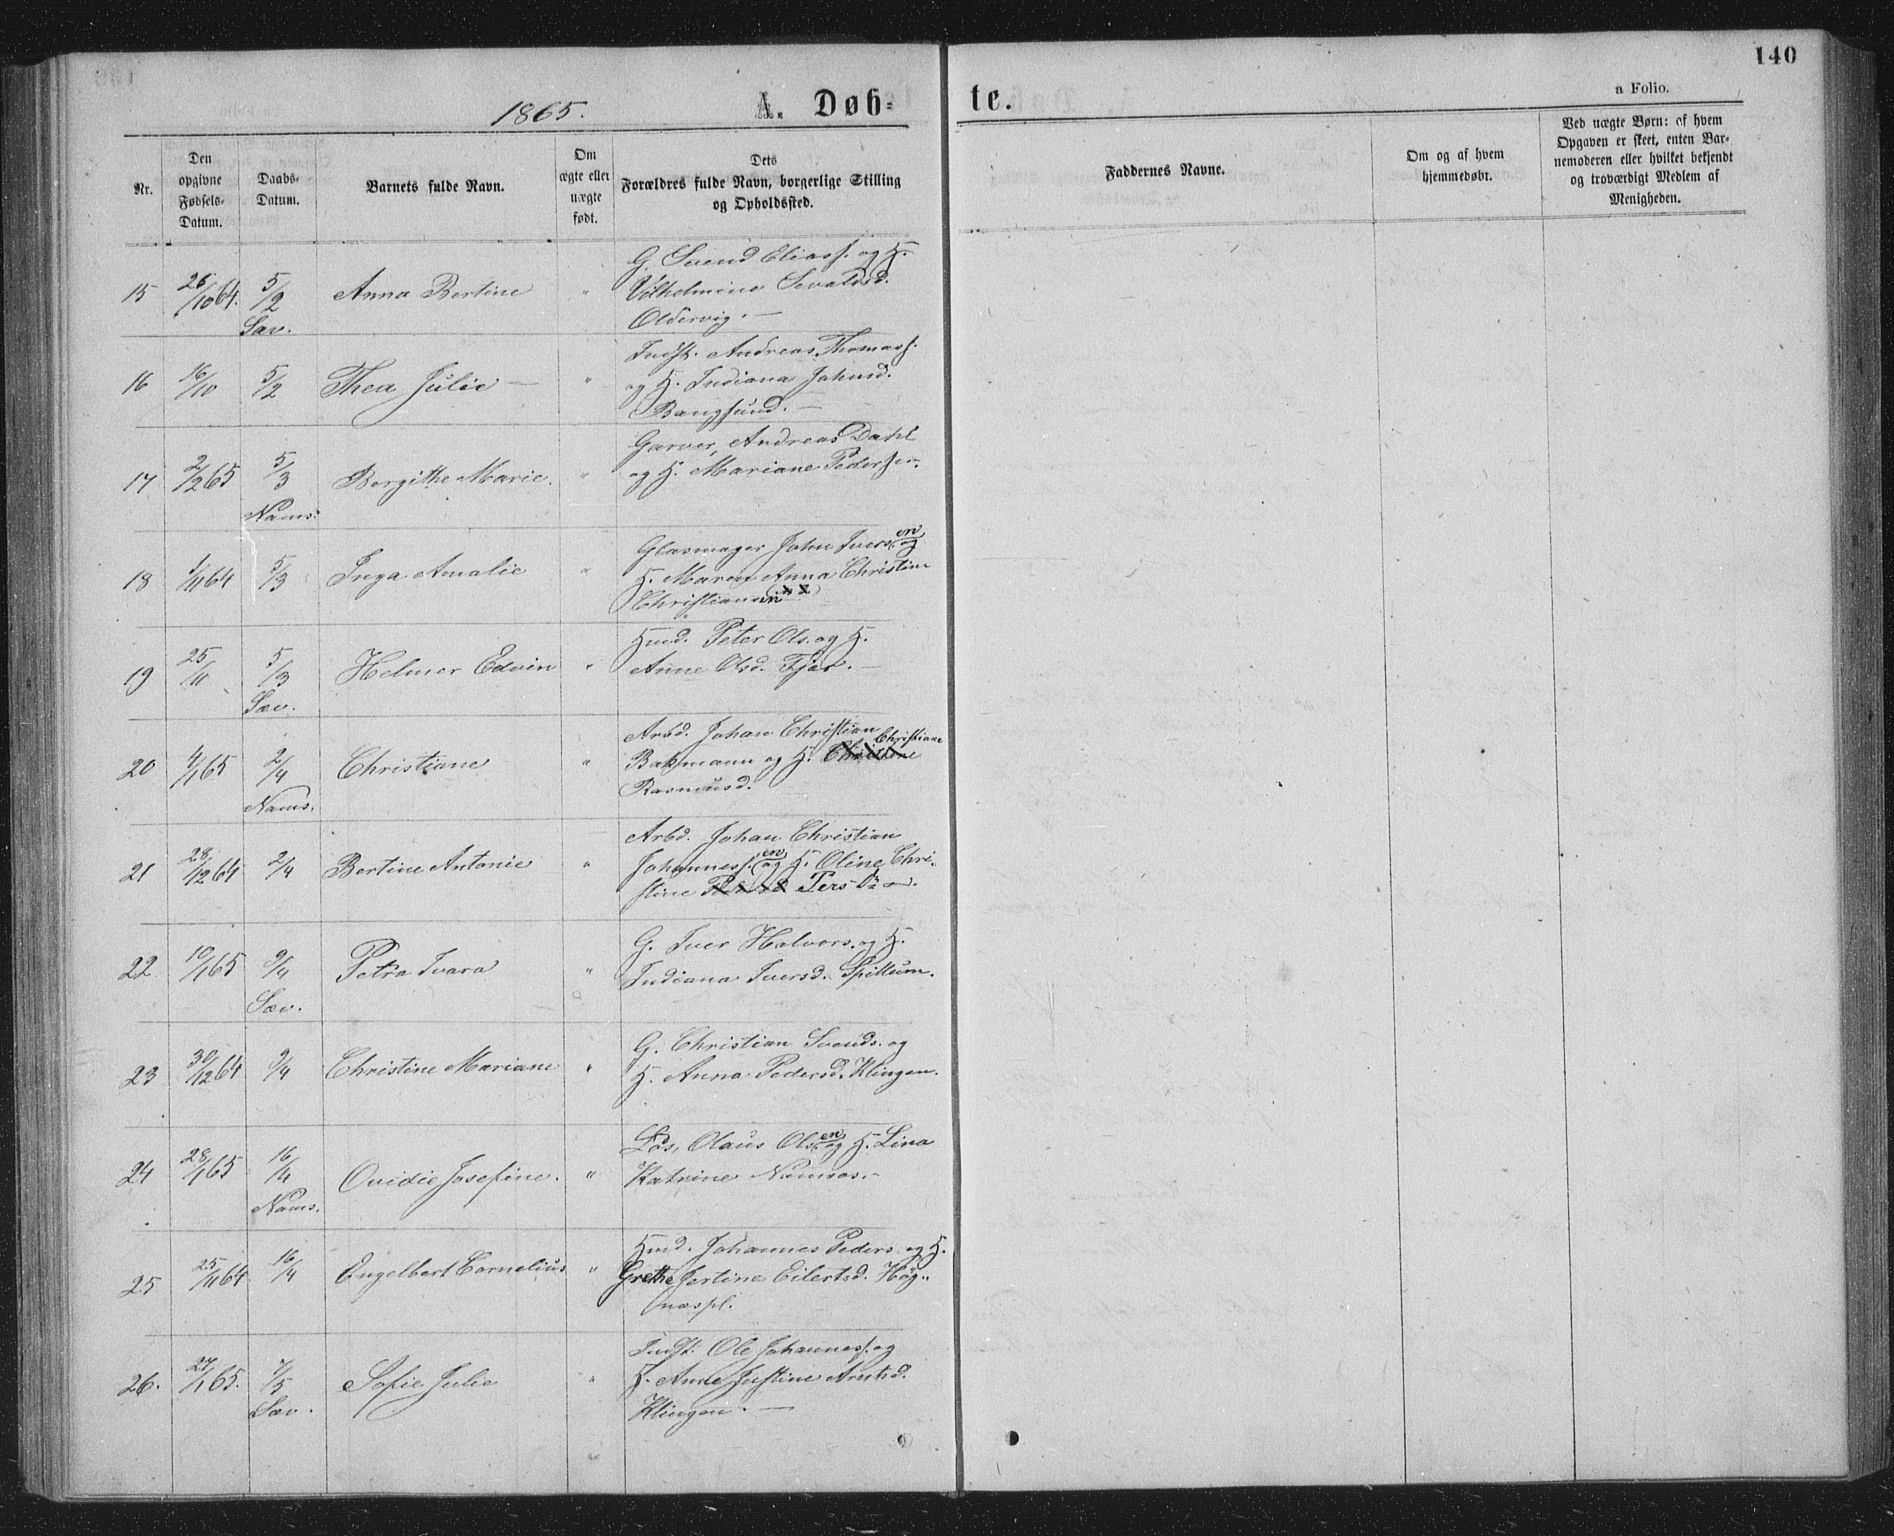 140
a Folio.
1865.
A. Døb-
te.
Nr.
Den
opgivne
Fødsels-
Datum.
Daabs-
Datum.
Barnets fulde Navn.
Om
ægte eller
uægte
født.
Dets
Forældres fulde Navn, borgerlige Stilling
og Opholdssted.
Faddernes Navne.
Om og af hvem
hjemmedøbt.
Ved uægte Børn: af hvem
Opgaven er skeet, enten Bar-
nemoderen eller hvilket bekjendt
og troværdigt Medlem af
Menigheden.
15 26/10 64. 5/2 Anna Bertine "
Sæv.
G. Svend Eliass. og H.
Vilhelmine Sevaldsd.
Oldervig. —
16 16/10 5/2 Thea Julie — "
Indst. Andreas Thomass.
og H. Indiana Johnsd.
Bangsund. —
17 2/2 65 5/3 Bergithe Marie. "
Nams.
Garver, Andreas Dahl
og H. Mariane Pedersen.
18 1/11 64 5/3 Inga Amalie "
Glasmager John Iversen og
H. Maren Anna Christine
Christiansen
19 25/11 5/3 Helmer Edvin "
Sæv.
Husd. Peter Ols. og H.
Anne Olsd. Fjær. —
20 4/1 65 2/4 Christiane "
Nams.
Arbd. Johan Christian
Christiane
Bakmann og H. Christine
Rasmusd.
21 28/12 64 2/4 Bertine Antonie "
Arbd. Johan Christian
Johannessen og H. Oline Chri-
stine Pers
22. 10/1 65 9/4 Petra Ivara "
Sæv.
G. Iver Halvors. og H.
Indiana Iversd. Spillum.
23 30/12 64 9/4 Christine Mariane "
G. Christian Svends. og
H. Anna Pedersd. Klingen.
24 28/1 65 16/4 Ovidie Josefine. "
Nams.
Lds. Olaus Olsen og H. Lina
Katrine Namsos. -
25 25/11 64 16/4 Engelbert Cornelius "
Husd. Johannes Peders. og H.
Grethe Jertine Eilertsd. Høg-
næspl.
26. 27/1 65. 7/5 Sofie Julie "
Sæv.
Indst. Ole Johanness. og
H. Anne Justine Arntsd.
Klingen. —